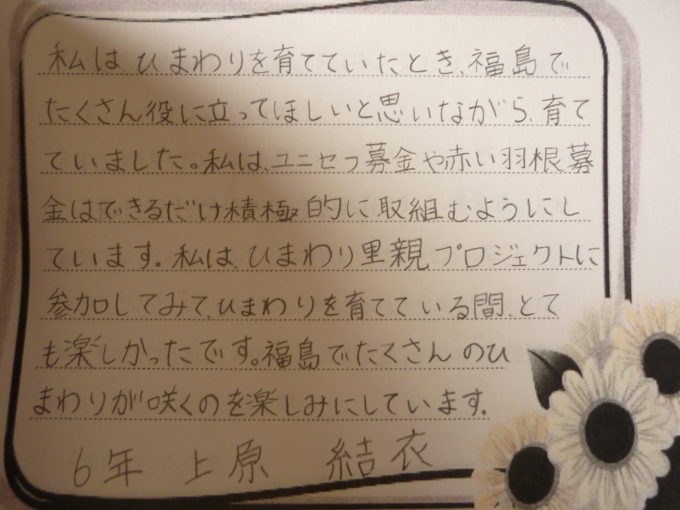 私は、ひまわりを育てていたとき、福島で
たくさん役に立ってほしいと思いながら、育て
ていました。私は、ユニセフ募金や赤い羽根募
金はできるだけ積極的に取組むようにし
ています。私は、ひまわり里親プロジェクトに
参加してみて、ひまわりを育てている間、とて
も楽しかったです。福島でたくさんのひ
まわりが咲くのを楽しみにしています。
6年 上原 結衣